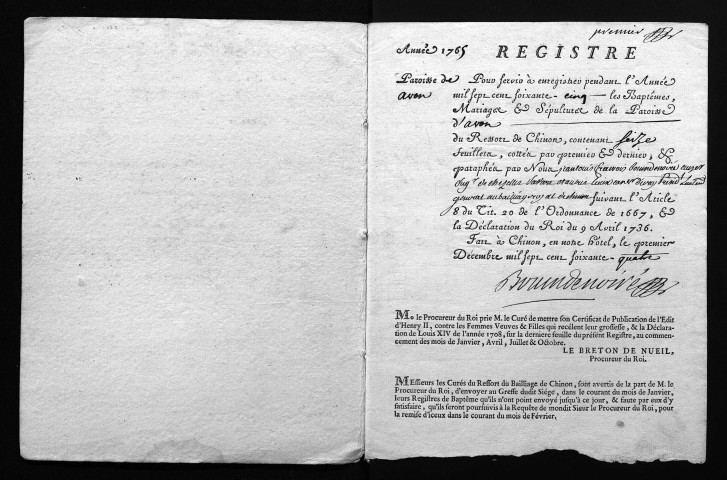 premier
Année 1765 REGISTRE
Paroisse de
avon
Pour servir à enregistrer pendant l'Année
mil sept cent soixante-cinq les Baptêmes,
Mariages & Sépultures de la Paroisse
d'avon
du Ressort de Chinon, contenant seize
feuillets, cottés par premier & dernier, &
paraphés par Nous,
suivant l'Article
8 du Tit. 20 de l'Ordonnance de 1667, &
la Déclaration du Roi du 9 Avril 1736.
Fait à Chinon, en notre hôtel, le premier
Décembre mil sept cent soixante-quatre
M. le Procureur du Roi prie M. le Curé de mettre son Certificat de Publication de l'Edit
d'Henry II, contre les Femmes Veuves & Filles qui recélent leur grossesse, & la Déclara-
tion de Louis XIV de l'année 1708, sur la derniere feuille du présent Registre, au commen-
cement des mois de Janvier, Avril, Juillet & Octobre.
LE BRETON DE NUEIL,
Procureur du Roi.
MEssieurs les Curés du Ressort du Bailliage de Chinon, sont avertis de la part de M. le
Procureur du Roi, d'envoyer au Greffe dudit Siége, dans le courant du mois de Janvier,
leurs Registres de Baptême qu'ils n'ont point envoyé jusqu'à ce jour, & faute par eux d'y
satisfaire, qu'ils seront poursuivis à la Requête de mondit Sieur le Procureur du Roi, pour
la remise d'iceux dans le courant du mois de Février.